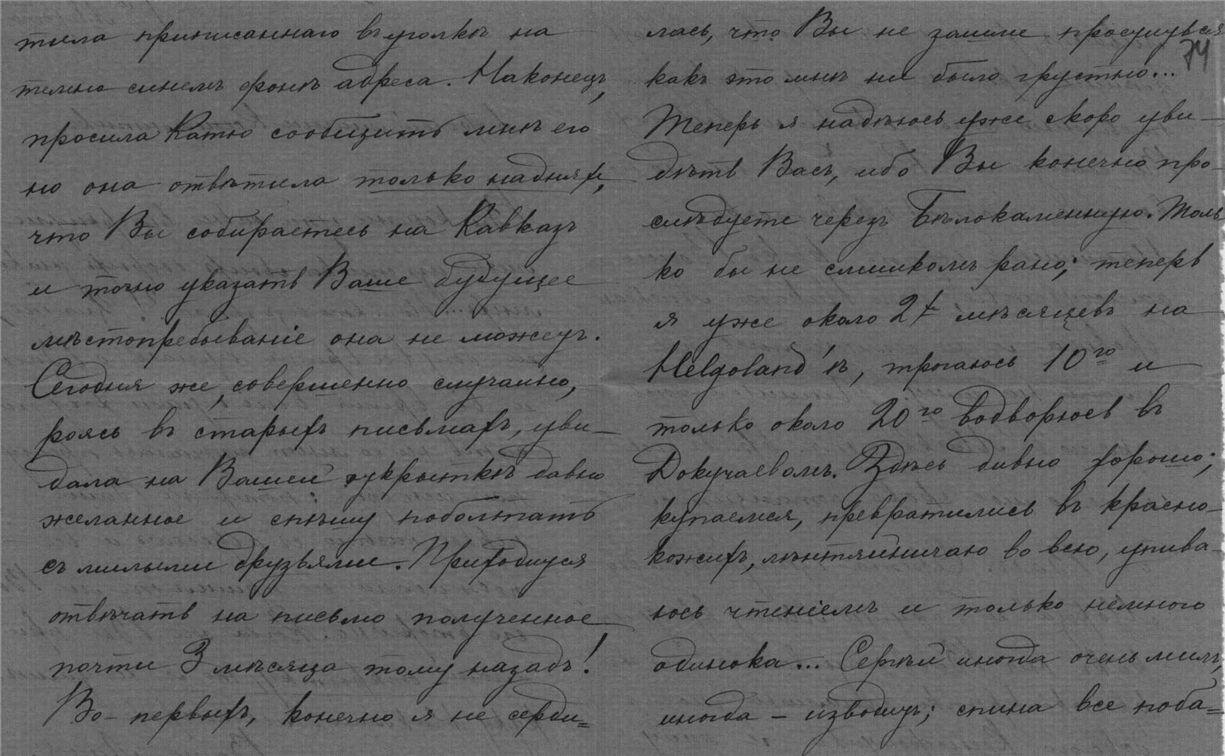 тила приписаннаго въ уголкѣ на
темно синемъ фонѣ адреса. Наконецъ,
просила Катю сообщить мнѣ его
но она отвѣтила только надняхъ,
что Вы собираетесь на Кавказъ
и точно указать Ваше будущее
мѣстопребываніе она не можетъ.
Сегодня же, совершенно случайно,
роясь въ старыхъ письмахъ, уви-
дала на Вашей открыткѣ давно
желанное и спѣшу поболтать
съ милыми друзьями. Приходится
отвѣчать на письмо полученное
почти 3 мѣсяца тому назадъ!
Во-первыхъ, конечно я не серди=
74
лась, что Вы не заѣхали
какъ это мнѣ ни было грустно...
Теперь я надѣюсь уже скоро уви-
дѣть Васъ, ибо Вы конечно про-
слѣдуете черезъ Бѣлокаменную. Толь
ко бы не слишкомъ рано; теперь
я уже около 2х мѣсяцевъ на
Helgoland'ѣ, трогаюсь 10го и
только около 20го водворюсь въ
Докучаевомъ. Здѣсь дивно хорошо;
купаемся, превратились въ красно-
кожихъ, лѣнтяйничаю во всю, упива-
юсь чтеніемъ и только немного
одинока... Сергѣй иногда очень милъ,
иногда - изводитъ; спина все поба=